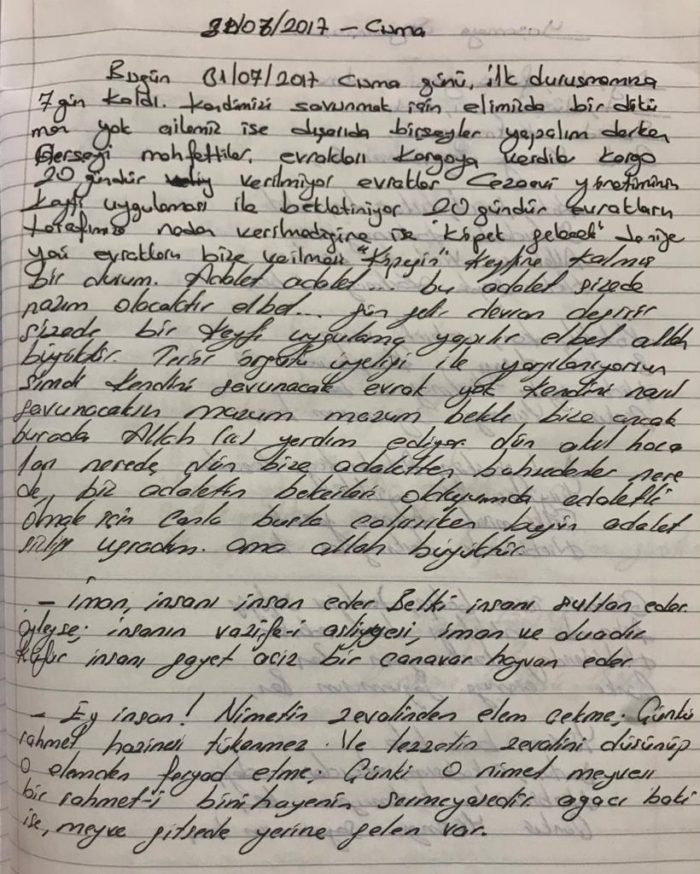 31/07/2017 – Cuma
Bugün 31/07/2017 Cuma günü, ilk duruşmamıza
7 gün kaldı. Kendimizi savunmak için elimizde bir dökü
man yok ailemiz ise dışarıda birşeyler yapalım derken
Herşeyi mahfettiler, evrakları kargoya verdiler kargo
20 gündür verilmiyor evraklar Cezaevi yönetiminin
keyfi uygulaması ile bekletiniyor 20 gündür evrakların
tarafımıza neden verilmediğine ise "köpek gelecek" deniliye
yani evrakların bize verilmesi "Köpeğin" keyfine kalmış
bir durum. Adalet adalet... bu adalet sizede
nazım olacaktır elbet... gün gelir devran değişir
sizede bir keyfi uygulama yapılır elbet allah
büyüktür. Terör örgütü üyeliği ile yargılanıyorsun
şimdi kendini savunacak evrak yok kendini nasıl
savunacaksın mazum mazum bekle bize ancak
burada Allah (cc) yardım ediyor dün akıl hoca
ları nerede, dün bize adaletten bahsedenler nere
de, biz adaletin bekçileri adaletli
olmak için canla başla çalışırken bugün adalet
sizliğe uğradım. ama allah büyüktür.
– İman, insanı insan eder Belki insanı sultan eder
öyleyse; insanın vazife-i asliyyesi, iman ve duadır
Küfür insanı gayet aciz bir canavar hayvan eder
– Ey insan! Nimetin zevalinden elem çekme; Çünkü
rahmet hazinesi tükenmez. Ve lezzetin zevalini düşünüp
O elemden feryad etme; Çünki O nimet meyvesi
bir rahmet-i binihayenin semeresidir ağacı baki
ise, meyve gitsede yerine gelen var.